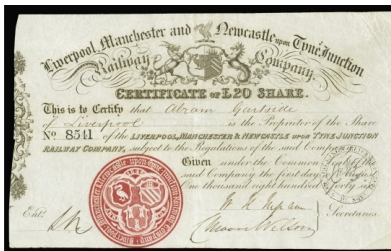 Liverpool, Manchester and Newcastle upon Tyne Junction
Railway Company.
CERTIFICATE OF £20 SHARE.
This is to Certify that Abram Gartside
of Liverpool is the Proprietor of the Share
No 8541 of the LIVERPOOL, MANCHESTER & NEWCASTLE UPON TYNE JUNCTION
RAILWAY COMPANY, subject to the Regulations of the said Company
Given under the Common Seal of the
said Company the first day of August
One thousand eight hundred & forty six
Entd.
Secretaries